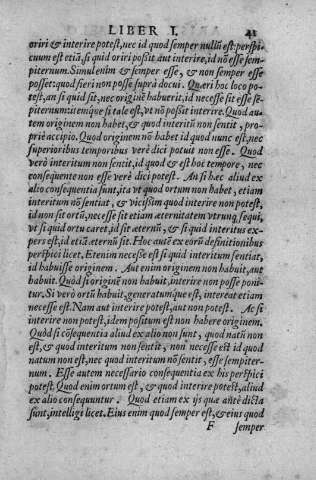 LIBER I. 41
oriri & interire potest, nec id quod semper nullũ est: perspi-
cuum est etiã, si quid oriri possit aut interire, id nõ esse sem-
piternum. Simul enim & semper esse, & non semper esse
posset: quod fieri non posse suprà docui. Quæri hoc loco po-
test, an si quid sit, nec originẽ habuerit, id necesse sit esse se-
piternum: itemque si tale est, vt nõ possit interire. Quod au-
tem originem non habet, & quod interitũ non sentit, pro-
priè accipio. Quod originem nõ habet id quod nunc est, nec
superioribus temporibus verè dici potuit non esse. Quod
verò interitum non sentit, id quod & est hoc tempore, nec
consequente non esse verè dici potest. An si hæc aliud ex
alio consequentia sunt, ita vt quod ortum non habet, etiam
interitum nõ sentiat, & vicissim quod interire non potest,
id non sit ortũ, necesse sit etiam æternitatem vtrunq; sequi,
vt si quid ortu caret, id sit æternũ, & si quid interitus ex-
pers est, id etiã æternũ sit. Hoc autẽ ex eorũ definitionibus
perspici licet. Etenim necesse est si quid interitum sentiat,
id habuisse originem. Aut enim originem non habuit, aut
habuit. Quòd si originẽ non habuit, interire non posse poni-
tur. Si verò ortũ habuit, generatumque est, intereat etiam
necesse est. Nam aut interire potest, aut non potest. Ac si
interire non potest, idem positum est non habere originem.
Quòd si cõsequentia aliud ex alio non sunt, quod natũ non
est, & quod interitum non sentit, non necesse est id quod
natum non est, nec quod interitum nõ sentit, esse sempiter-
num. Esse autem necessario consequentia ex his perspici
potest. Quod enim ortum est, & quod interire potest, aliud
ex alio consequuntur. Quod etiam ex ijs quæ antè dicta
sunt, intelligi licet. Eius enim quod semper est, & eius quod
F semper